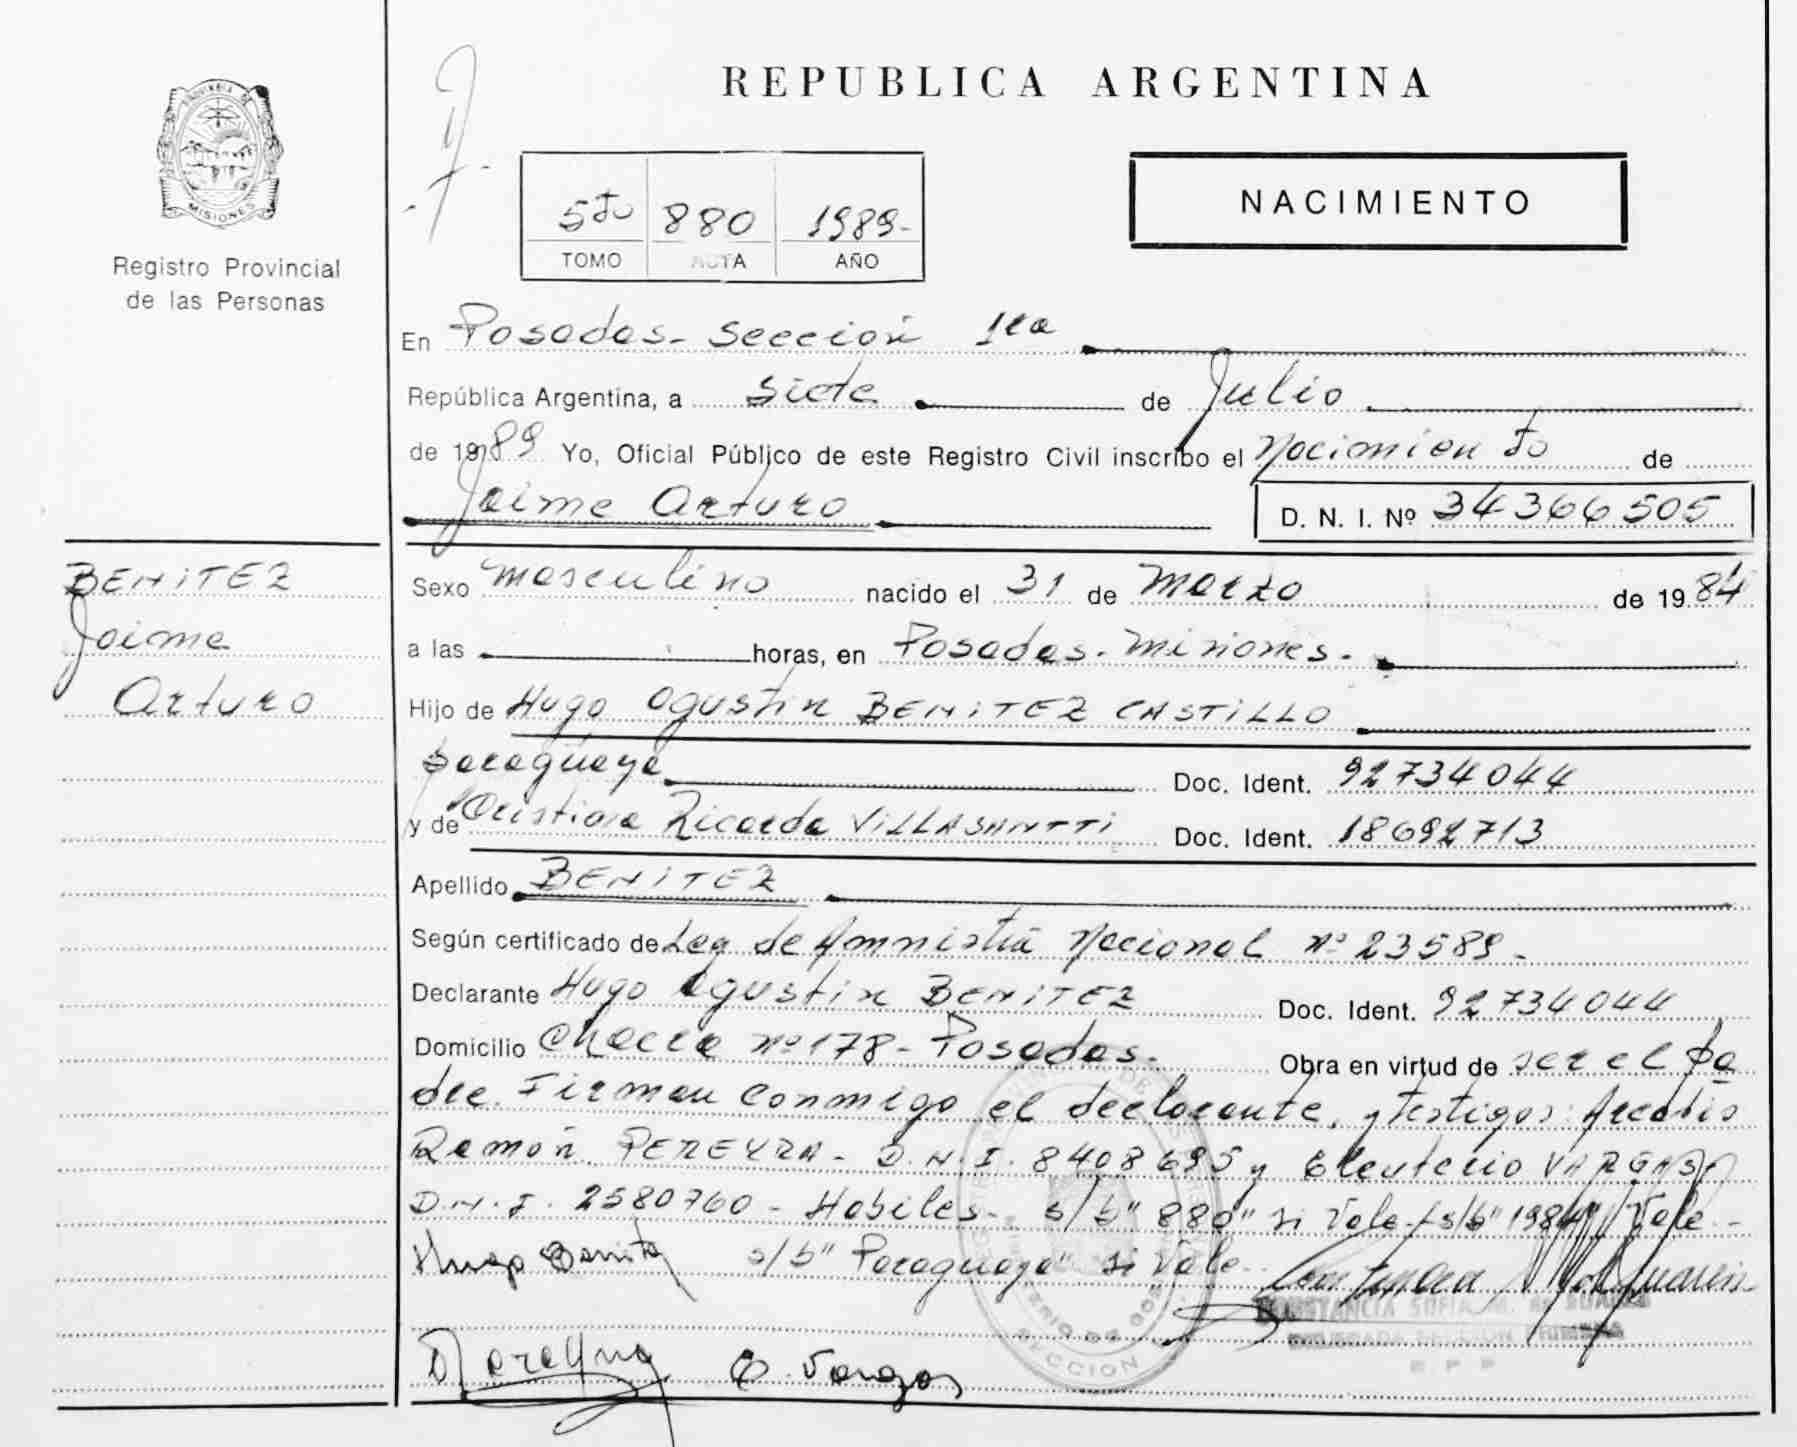 REPUBLICA ARGENTINA
PROVINCIA DE
MISIONES
Registro Provincial
de las Personas
5to 880 1989-
TOMO ACTA AÑO
NACIMIENTO
En Posadas - Sección 1ra
República Argentina, a siete de Julio
de 1989 Yo, Oficial Público de este Registro Civil inscribo el Nacimiento de
Jaime Arturo D. N. I. Nº 34366505
BENITEZ
Jaime
Arturo
Sexo masculino nacido el 31 de Marzo de 1984
a las horas, en Posadas - Misiones -
Hijo de Hugo Agustín BENITEZ CASTILLO
paraguaya Doc. Ident. 92734044
y de Cristina Ricarda VILLASANTTI Doc. Ident. 18692713
Apellido BENITEZ
Según certificado de Ley de Amnistía Nacional Nº 23589 -
Declarante Hugo Agustín BENITEZ Doc. Ident. 92734044
Domicilio Chacra Nº 178 - Posadas - Obra en virtud de ser el pa
dre. Firman conmigo el declarante, y testigos: Arcadio
Ramón PEREYRA - D.N.I. 8408695 y Eleuterio VARGAS
D.N.I. 2580760 - Hábiles - s/b "880" si Vale - s/b "1984" Vale -
Hugo Benitez s/b "Paraguaya" si Vale -
CONSTANCIA SOFIA M. de SUAREZ
DELEGADA SECCION PRIMERA
R P P
Pereyra E. Vargas
MINISTERIO DE GOB
SECCION